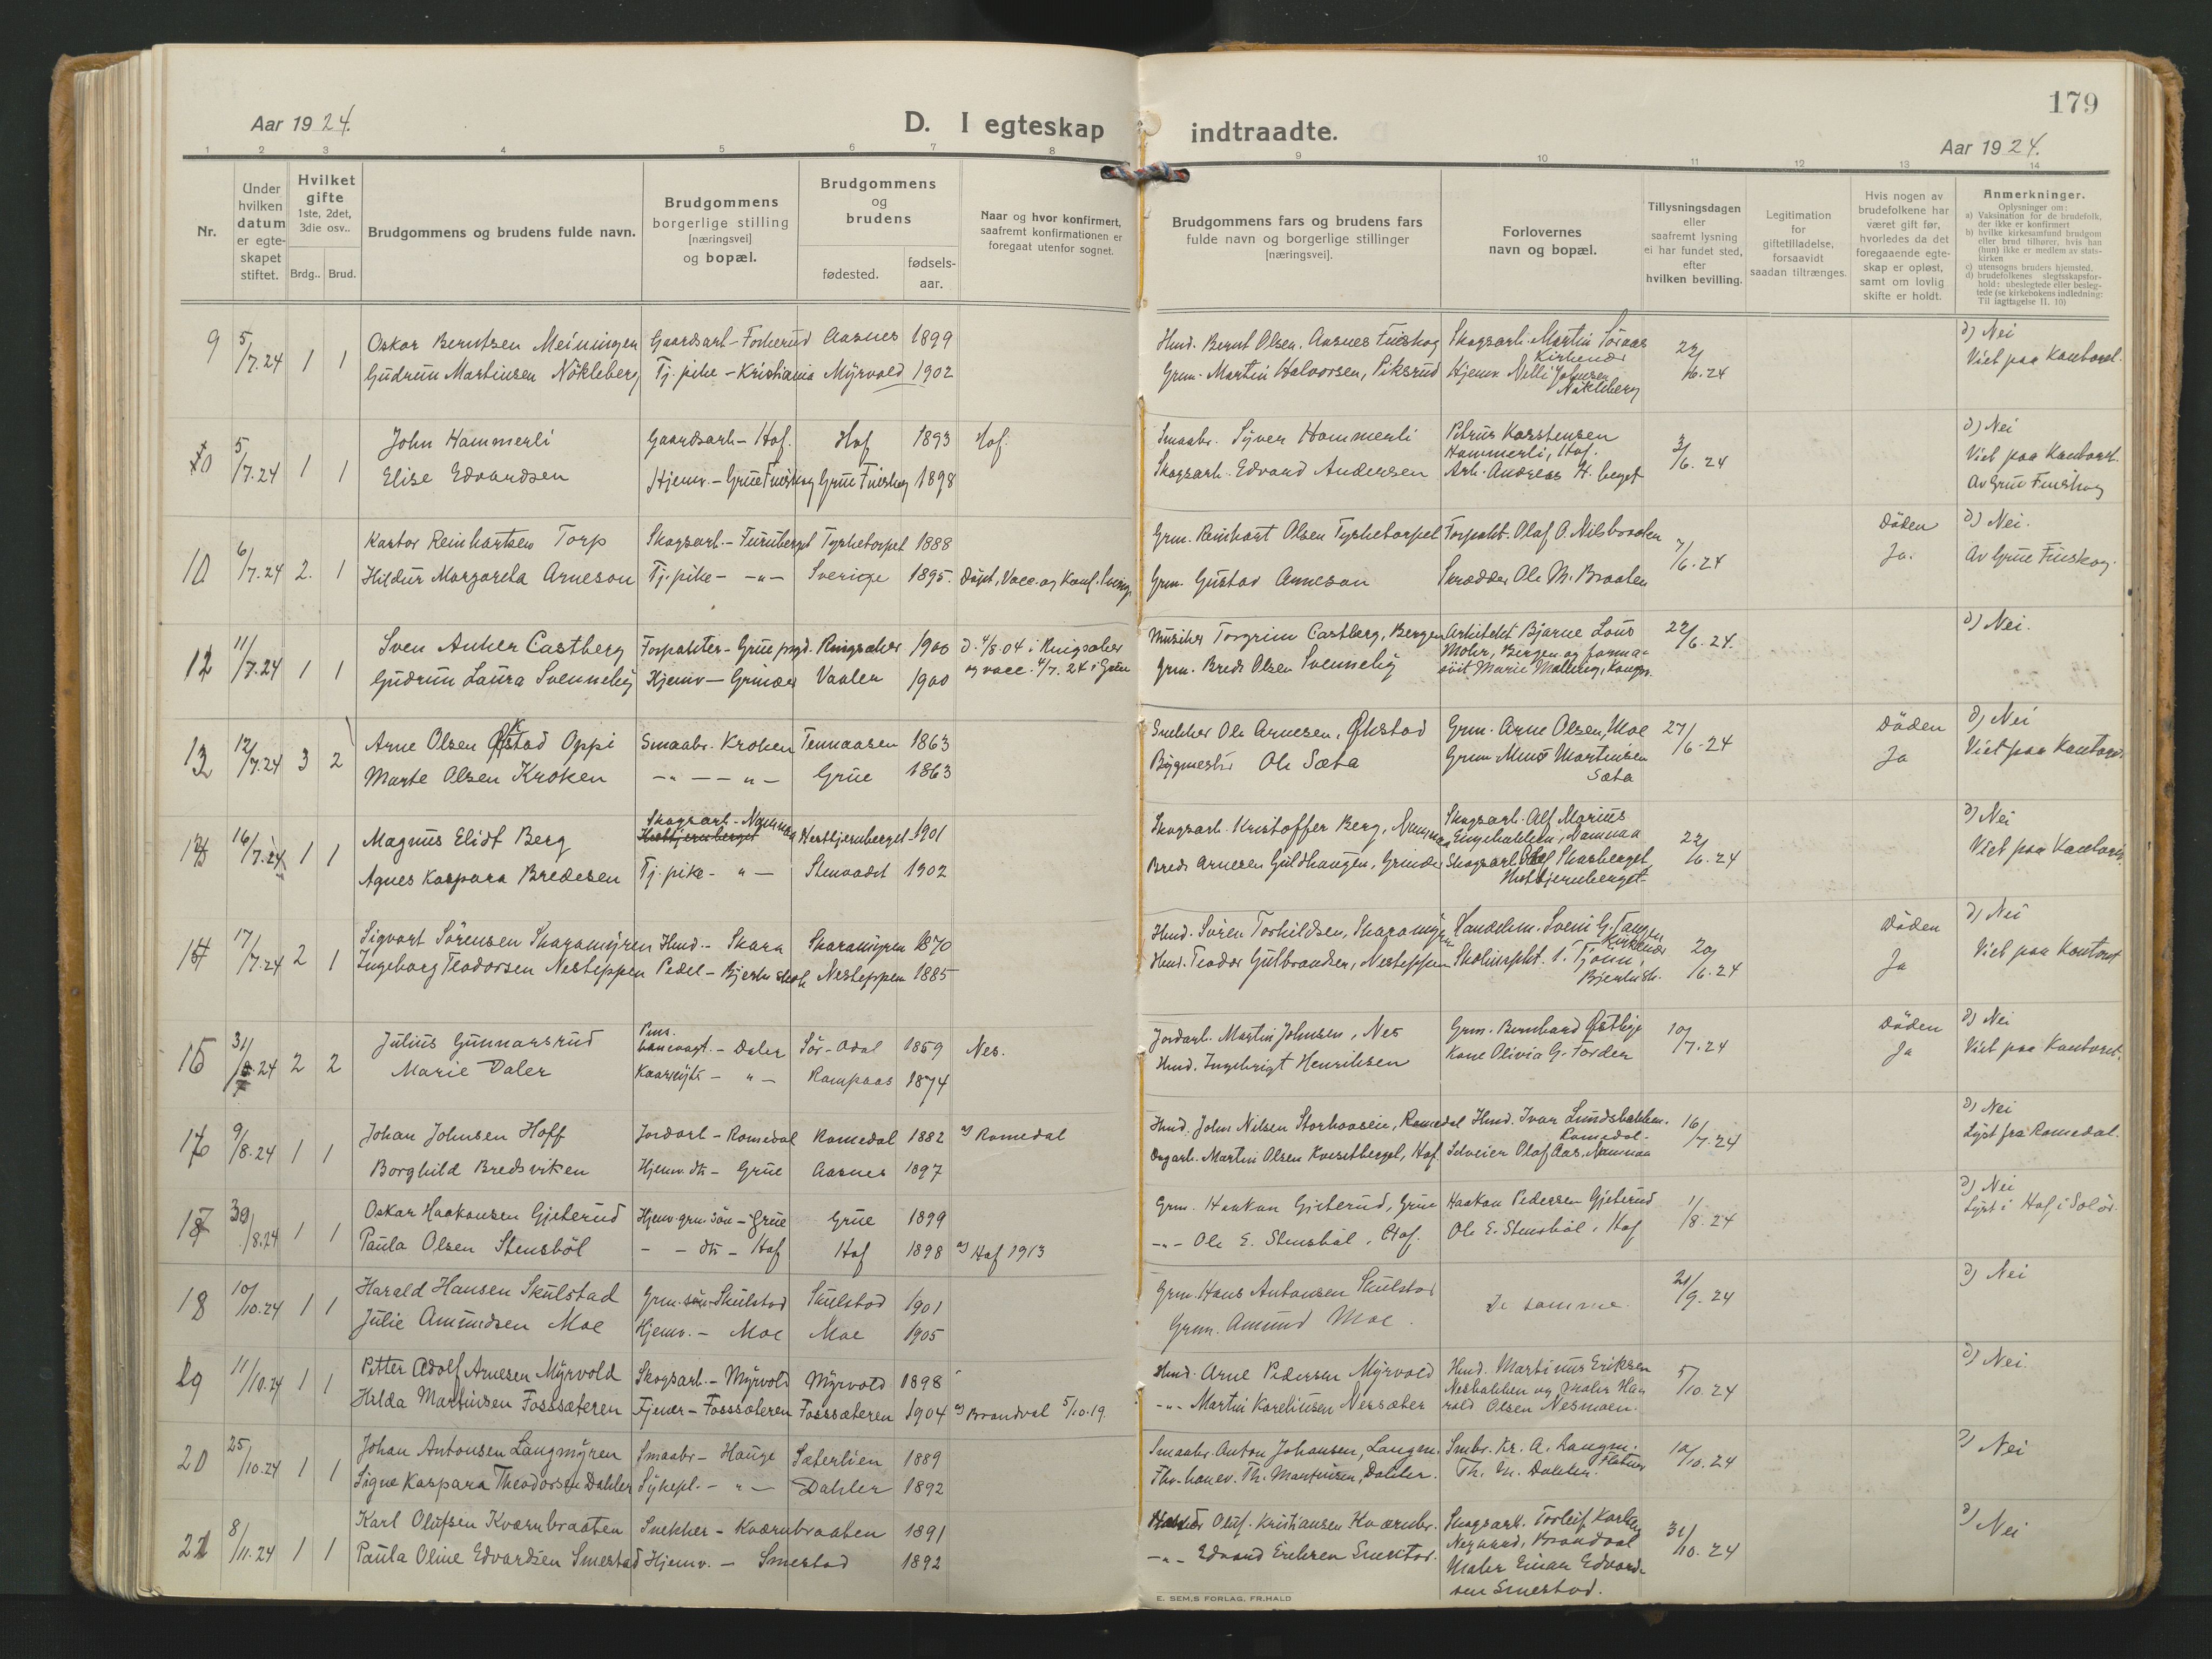 179
Aar 1924.
D. I egteskap indtraadte.
Aar 1924.
1 2 3 4 5 6 7 8 9 10 11 12 13 14
Nr.
Under
hvilken
datum
er egte-
skapet
stiftet.
Hvilket
gifte
1ste, 2det,
3die osv..
Brdg.. Brud.
Brudgommens og brudens fulde navn.
Brudgommens
borgerlige stilling
[næringsvei]
og bopæl.
Brudgommens
og
brudens
fødested.
fødsels-
aar.
Naar og hvor konfirmert,
saafremt konfirmationen er
foregaat utenfor sognet.
Brudgommens fars og brudens fars
fulde navn og borgerlige stillinger
[næringsvei].
Forlovernes
navn og bopæl.
Tillysningsdagen
eller
saafremt lysning
ei har fundet sted,
efter
hvilken bevilling.
Legitimation
for
giftetilladelse,
forsaavidt
saadan tiltrænges.
Hvis nogen av
brudefolkene har
været gift før,
hvorledes da det
foregaaende egte-
skap er opløst,
samt om lovlig
skifte er holdt.
Anmerkninger.
Oplysninger om:
a) Vaksination for de brudefolk,
der ikke er konfirmert
b) hvilke kirkesamfund brudgom
eller brud tilhører, hvis han
(hun) ikke er medlem av stats-
kirken
c) utensogns bruders hjemsted.
d) brudefolkenes slegtsskapsfor-
hold: ubeslegtede eller besleg-
tede (se kirkebokens indledning:
Til iagttagelse II. 10)
9 5/7.24 1 1 Oskar Berntsen Meiningen Gaardsarb - Aasnes 1899 Hmd. Bernt Olsen. Aasnes Finskog Skogsarb. Martin 22/6.24 d) Nei
Kirkenær Viet paa Kontoret.
Gudrun Martinsen Nökleberg Tj. pike - Kristiania Myrvold 1902 Grm. Martin Halvorsen, Piksrud Hjemv Nelli Johnsen
Nökleberg
10 5/7.24 1 1 John Hammerli Gaardsarb - Hof. Hof 1893 Hof. Smaabr. Syver Hammerli Petrus Karstensen 3/6.24 d) Nei
Hammerli, Hof. Viet paa Kontoret.
Elise Edvardsen Hjemv. - Grue Finskog Grue Finskog 1898 Skogsarb. Edvard Andersen Arb. Andreas H. Av Grue Finskog
10 6/7.24 2. 1 Kastor Reinhartsen Torp Skogsarb. - Furuberget Tysketorpet 1888 Grm. Reinhart Olsen Tysketorpet Torpakt. Olaf O. Nilsbraaten 7/6.24 Döden d) Nei.
Hildur Margareta Arneson Tj. pike - -"- Sverige 1895. Döpt, Vacc. og Konf. Grm. Gustav Arneson Skrædder Ole M. Braaten Ja. Av Grue Finskog.
12 11/7.24 1 1 Sven Anker Castberg Forpakter - Grue prgd. Ringsaker 1900 d. 4/8.04 i Ringsaker Musiker Torgrim Castberg, Bergen Arkitekt Bjarne Lous 22/6.24. d) Nei.
Mohr, Bergen og
Gudrun Laura Svenneby Hjemv - Grinder Vaaler 1900 og vacc. 4/7.24 i Grue Grm. Brede Olsen Svenneby Marie
13 12/7.24 3 2 Arne Olsen Økstad Oppi Smaabr. Kroken Tennaasen 1863 Snekker Ole Arnesen, Økstad Grm. Arne Olsen, Moe 27/6.24 Döden d) Nei
Marte Olsen Kroken -"- -"- Grue 1863 Bygmester Ole Sæta Grm Martinsen Ja Viet paa Kontoret
Sæta
14 16/7.24 1 1 Magnus Elidt Berg Skogsarb. - Namnaa Hestbjernberget 1901 Skogsarb. Kristoffer Berg, Namnaa Skogsarb. Alf Marius 22/6.24 d) Nei
Hestbjernberget Engebakken, Namnaa Viet paa Kontoret.
Agnes Kaspara Bredesen Tj. pike - " - Stenaadet 1902 Brede Arnesen Guldhaugen, Grinder Skogsarb. Olaf Skarberget,
Hestbjernberget
15 17/7.24 2 1 Sigvart Sörensen Skaramyren Hmd. - Skara Skaramyren 1870 Hmd. Sören Torkildsen, Skaramyren Handelsm. Sven G. Tangen 20/6.24 Döden d) Nei
Kirkenær
Ingeborg Teodorsen Nesteppen Pedel - Bjerke skole Nesteppen 1885 Hmd. Teodor Gulbrandsen, Nesteppen Ja Viet paa Kontoret
16 31/7.24 2 2 Julius Gunnarsrud Pens. banevagt. - Daler Sör-Odal 1859 Nes. Jordarb. Martin Johnsen, Nes Grm. Bernhard Østby 10/7.24 Döden d) Nei
Marie Daler - " - Rampaas 1874 Hmd. Ingebrigt Henriksen Kone Olivia G. Torder Ja Viet paa Kontoret.
17 9/8.24 1 1 Johan Johnsen Hoff Jordarb - Romedal Romedal 1882 a) Romedal Hmd. John Nilsen Storhaasen, Romedal Hmd. Ivar Lundsbakken. 16/7.24 d) Nei
Romedal. Lyst fra Romedal.
Borghild Bredsviken Hjemv. dtr - Grue Aasnes 1897 Dagarb. Martin Olsen Kvesetberget, Hof. Olaf Aas, Namnaa
18 30/8.24 1 1 Oskar Haakonsen Gjeterud Hjemv. grm. sön - Grue Grue 1899 Grm. Haakon Gjeterud, Grue Haakon Pedersen Gjeterud 1/8.24 d) Nei
Lyst i Hof i Solör.
Paula Olsen Stensböl - - dtr - Hof Hof 1898 a) Hof 1913 -"- Ole E. Stensböl, Hof. Ole E. Stensböl, Hof
18 10/10.24 1 1 Harald Hansen Skulstad Grm. sön Skulstad Skulstad 1901 Grm. Hans Antonsen Skulstad De samme. 21/9.24 d) Nei
Julie Amundsen Moe Hjemv. - Moe Moe 1905 Grm. Amund Moe.
19 11/10.24 1 1 Petter Adolf Arnesen Myrvold Skogsarb. - Myrvold Myrvold 1898 Hmd. Arne Pedersen Myrvold Hmd. Martinus Eriksen 5/10.24 d) Nei.
Nesbakken og Maler Ha-
Hilda Martinsen Fosssæteren Fosssæteren Fosssæteren 1904 a) Brandval 5/10.19. -"- Martin Kareliusen Nessæter rald Olsen Nesmoen.
20 25/10.24 1 1 Johan Antonsen Langmyren Smaabr - Hauge Sæterlien 1889 Smaabr. Anton Johansen, Langm. Smbr. Kr. A. Langm. 10/10.24 d) Nei
Signe Kaspara Theodorsen Dahler Sykepl. - " - Dahler 1892 Th. Martinsen, Dahler. Th. M. Dahler.
21 8/11.24 1 1 Karl Olufsen Kværnbraaten Snekker - Kværnbraaten 1891 Oluf. Kristiansen Kværnbr. Skogsark. Torleif 31/10.24 d) Nei
Negaard, Brandval
Paula Oline Edvardsen Smestad Hjemv. - Smestad 1892 -"- Edvard Eriksen Smestad. Maler Einar Edvard-
sen Smestad.
E. SEM,S FORLAG, FR.HALD